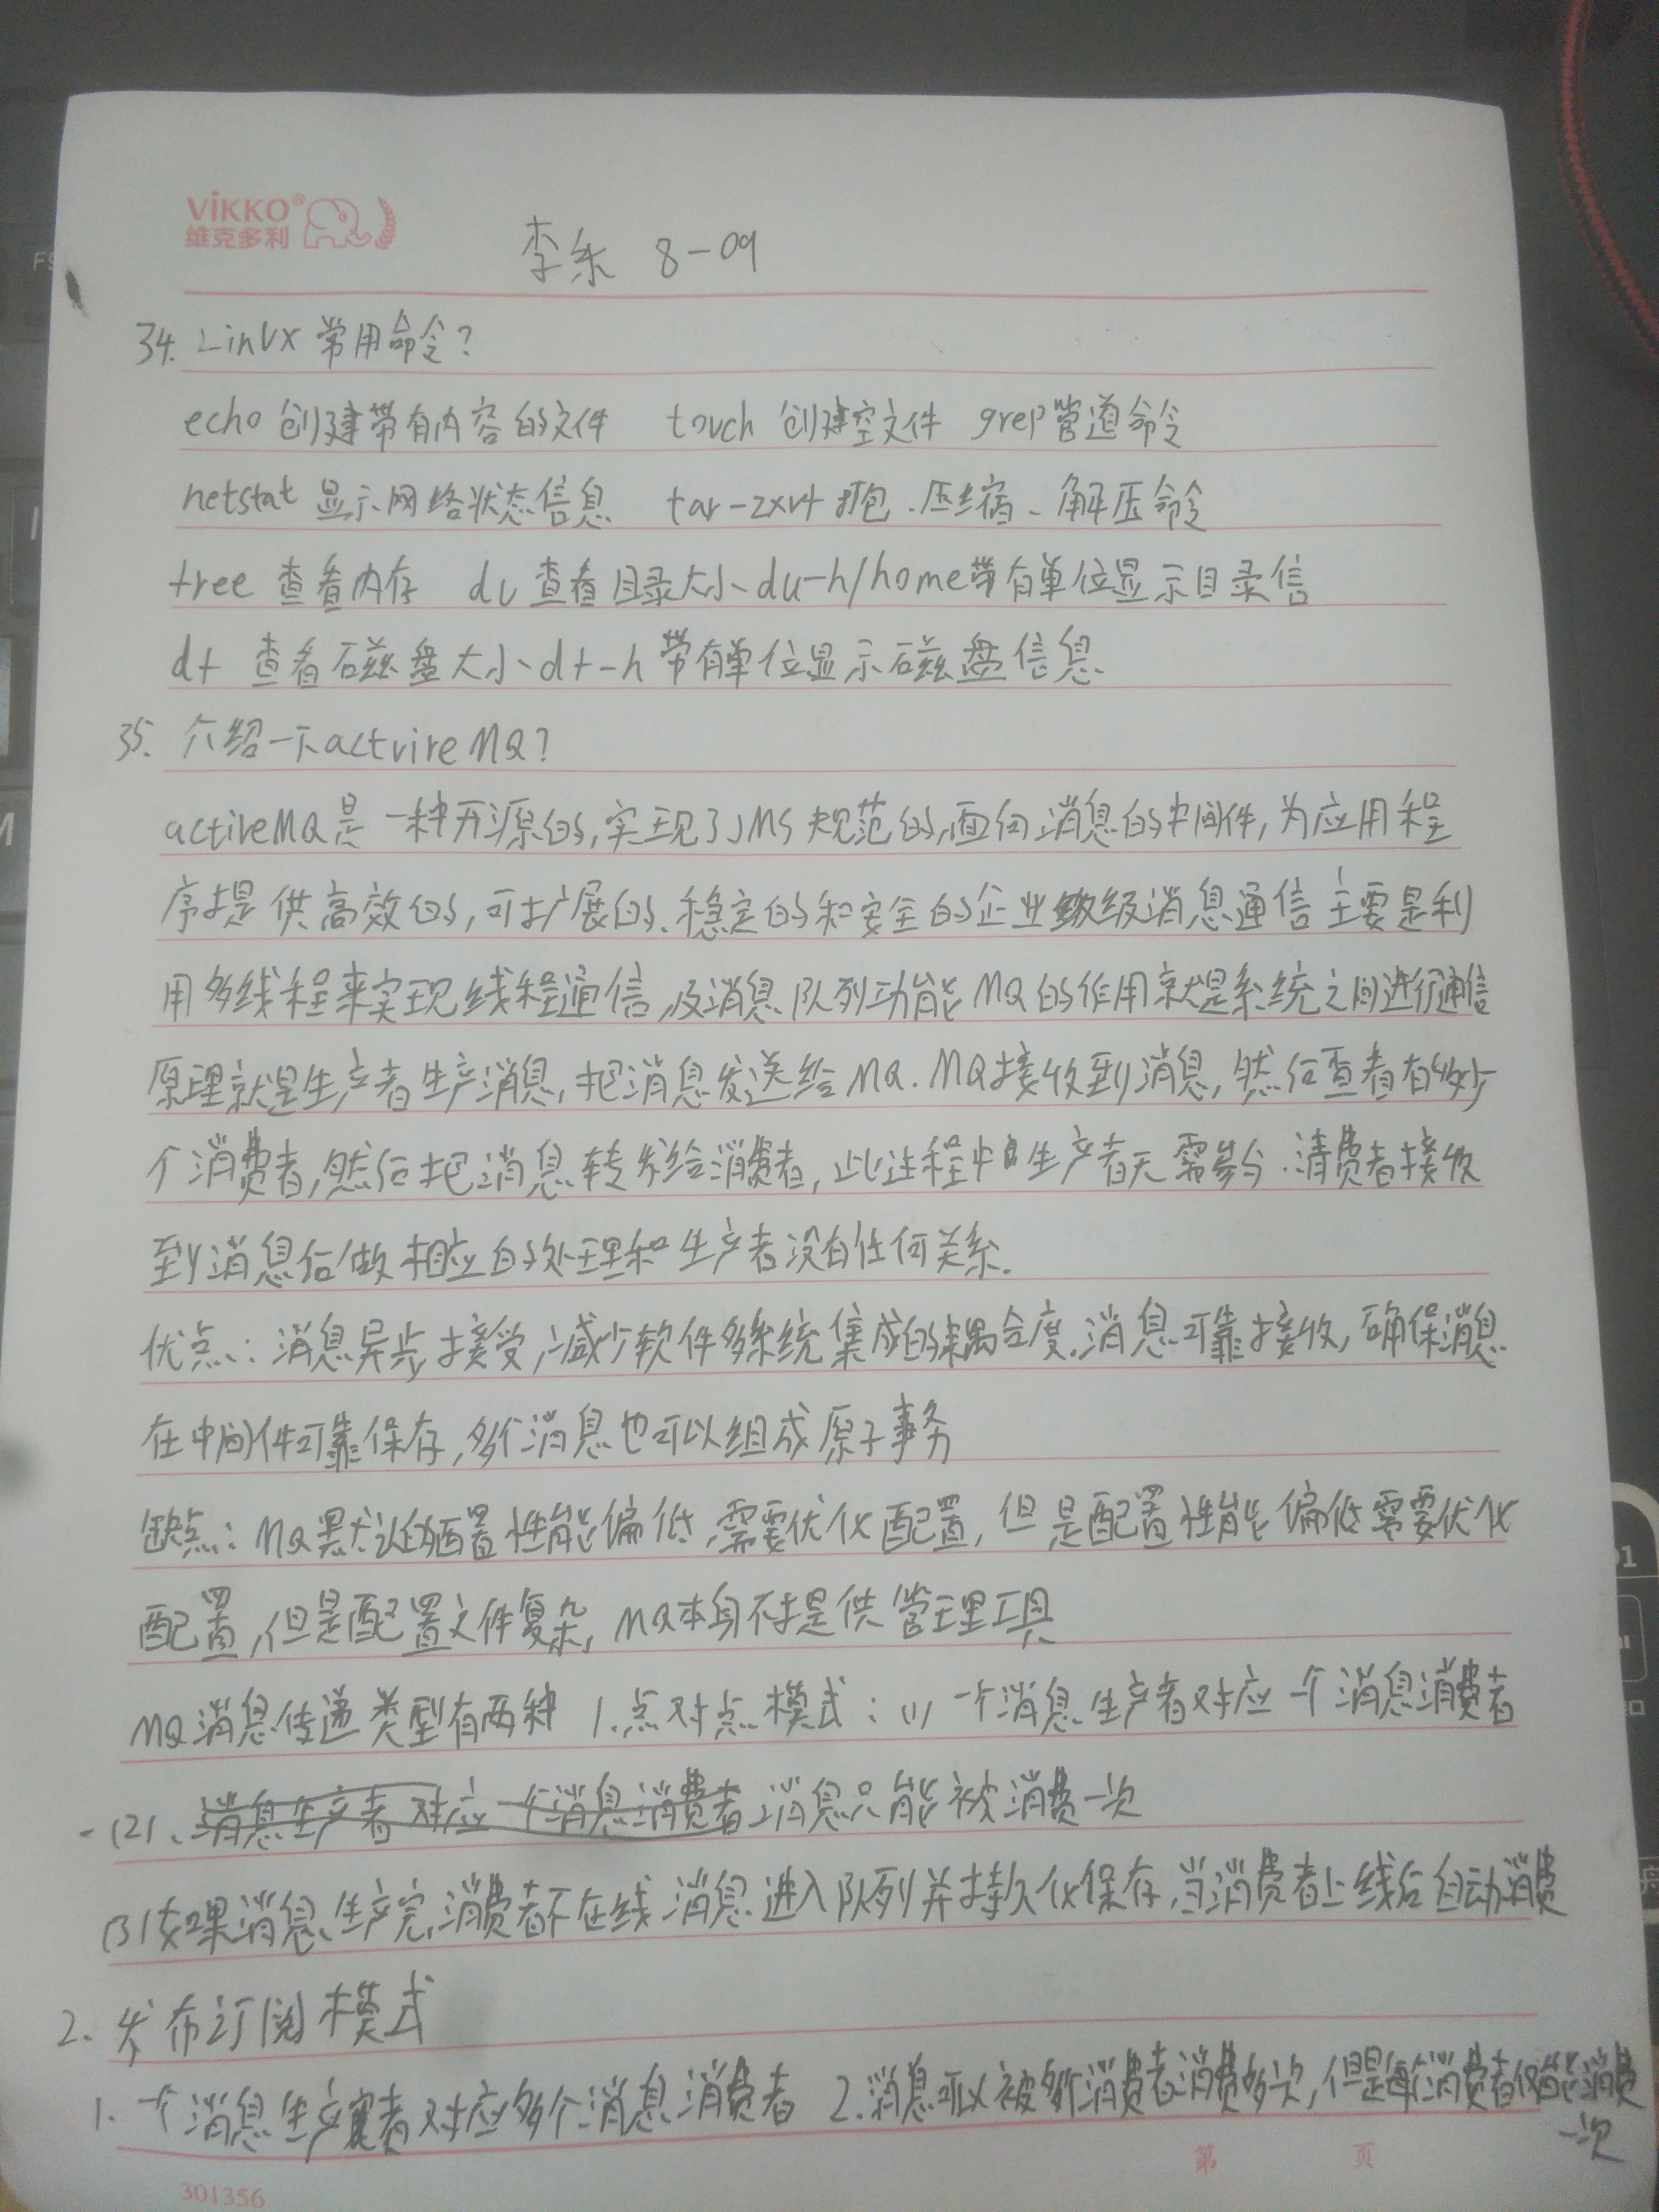 VIKKO®
维克多利
李乐 8-09
34. Linux 常用命令?
echo 创建带有内容的文件 touch 创建空文件 grep管道命令
netstat 显示网络状态信息 tar-zxvf 打包、压缩、解压命令
tree 查看内存 du 查看目录大小、du-h/home带有单位显示目录信
df 查看磁盘大小、df-h 带有单位显示磁盘信息
35. 介绍一下actvireMQ?
activeMQ是一种开源的,实现了JMS规范的,面向消息的中间件,为应用程
序提供高效的,可扩展的、稳定的和安全的企业级消息通信主要是利
用多线程来实现线程通信,及消息队列功能MQ的作用就是系统之间进行通信
原理就是生产者生产消息,把消息发送给MQ.MQ接收到消息,然后查看有多少
个消费者,然后把消息转发给消费者,此过程中生产者无需参与.消费者接收
到消息后做相应的处理和生产者没有任何关系.
优点:消息异步接受,减少软件多系统集成的耦合度.消息可靠接收,确保消息
在中间件可靠保存,多个消息也可以组成原子事务
缺点:MQ默认的配置性能偏低,需要优化配置,但是配置性能偏低需要优化
配置,但是配置文件复杂,MQ本身不提供管理工具
MQ消息传递类型有两种 1.点对点模式:(1)一个消息生产者对应一个消息消费者
(2)、消息生产者对应一个消息消费者消息只能被消费一次
(3)如果消息生产完,消费者不在线消息进入队列并持久化保存,当消费者上线后自动消费
2.发布订阅模式
1.一个消息生产者对应多个消息消费者 2.消息可以被多个消费者消费多次,但是每个消费者仅能消费
一次
第 页
301356